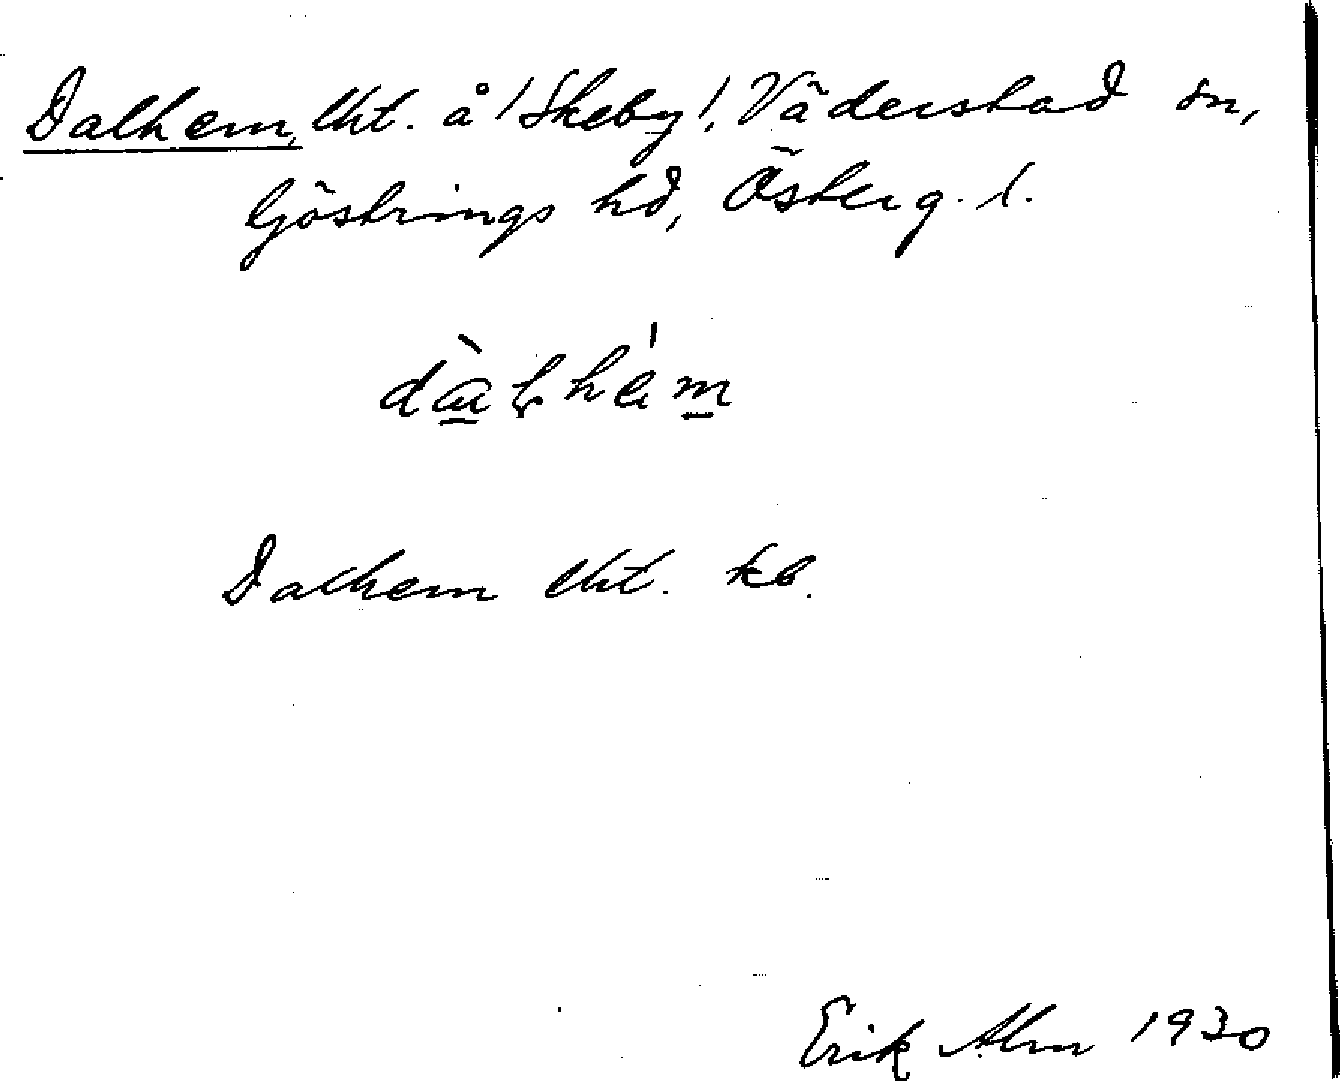 Dalhem, lht. å /Skeby/, Väderstad sn,
Göstrings hd, Österg. l.
dàlhém
Dalhem lht. kb.
Erik Alm 1930